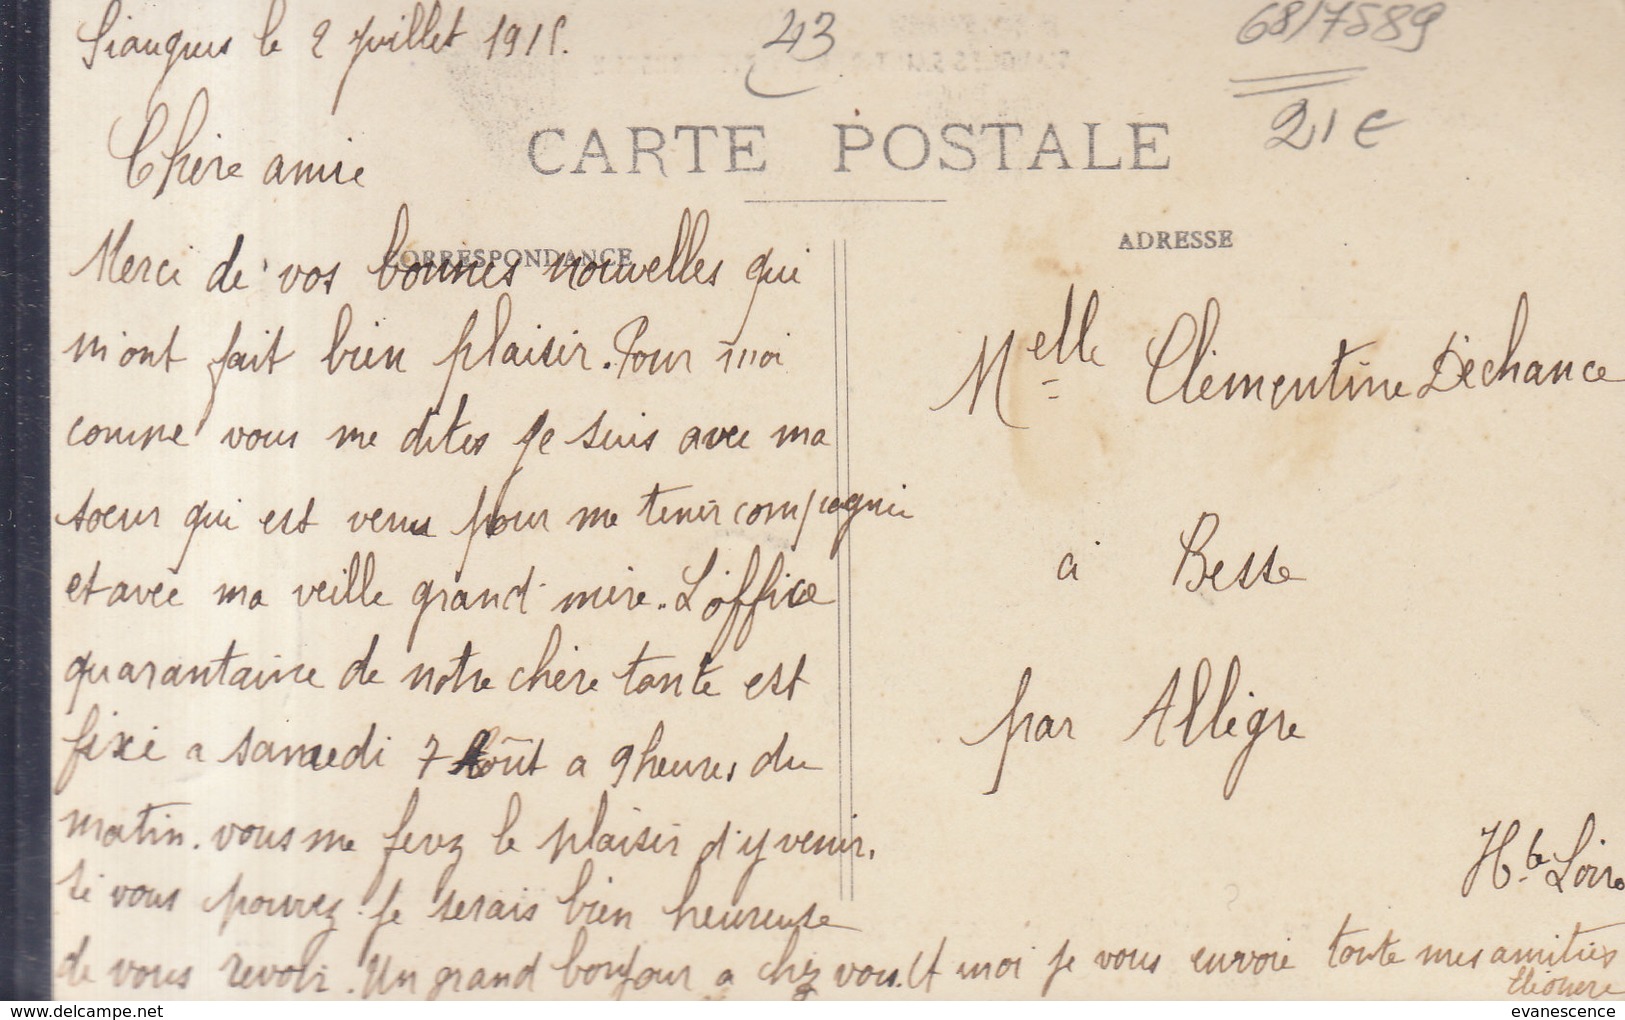 Siaugues le 2 juillet 1915.
43
68/7589
21 €
CARTE POSTALE
CORRESPONDANCE
ADRESSE
Chère amie
Merci de vos bonnes nouvelles qui
m'ont fait bien plaisir. Pour moi
comme vous me dites je suis avec ma
soeur qui est venu pour me tenir compagnie
et avec ma veille grand mère. L'office
quarantaine de notre chère tante est
fixé a samedi 7 Août a 9 heures du
matin. vous me ferez le plaisir d'y venir.
si vous pouvez. je serais bien heureuse
de vous revoir. Un grand bonjour a chez vous. Et moi je vous envoie toute mes amitiés
Eléonere
Melle Clementine Dechance
à Besse
par Allègre
Hte Loire
delcampe.net
evanescence